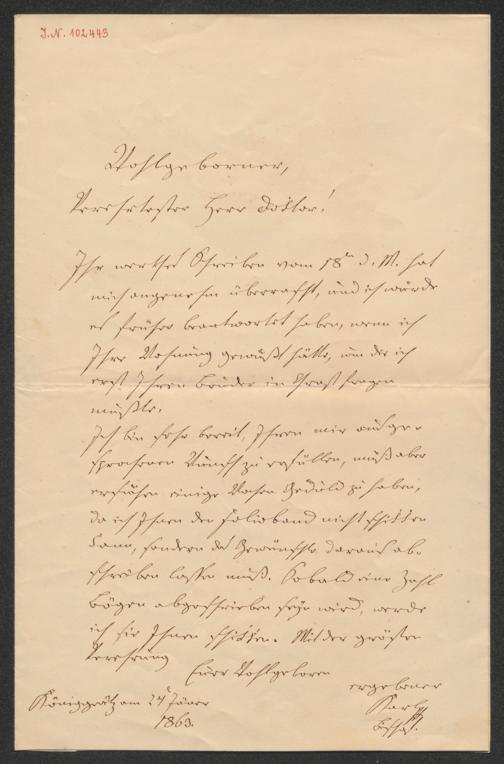 J.N. 102443
Wohlgeborner,
Verehrtester Herr Doktor!
Ihr werthes Schreiben vom 18ten d. M. hat
mich angenehm überrascht, und ich würde
es früher beantwortet haben, wenn ich
Ihre Wohnung gewußt hätte, um die ich
erst Ihren Bruder in Chrast fragen
mußte.
Ich bin sehr bereit, Ihren mir ausge-
sprochenen Wunsch zu erfüllen, muß aber
ersuchen einige Wochen Geduld zu haben,
da ich Ihnen den Folioband nicht schikken
kann, sondern das Gewünschte daraus ab-
schreiben lassen muß. Sobald eine Zahl
Bögen abgeschrieben seyn wird, werde
ich sie Ihnen schikken. Mit der größten
Verehrung
Euer Wohlgeboren
ergebener
Karl
Bischof.
Königgrätz am 24 Jäner
1863.